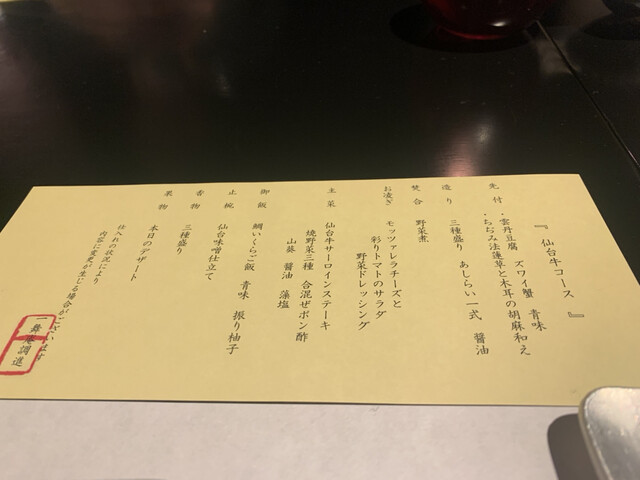 『 仙台牛コース 』
先付 ・雲丹豆腐 ズワイ蟹 青味
・ちぢみ法蓮草と木耳の胡麻和え
造り 三種盛り あしらい一式 醤油
焚合 野菜煮
お凌ぎ モッツァレラチーズと
彩りトマトのサラダ
野菜ドレッシング
主菜 仙台牛サーロインステーキ
焼野菜三種 合混ぜポン酢
山葵 醤油 藻塩
御飯 鯛いくらご飯 青味 振り柚子
止椀 仙台味噌仕立て
香物 三種盛り
果物 本日のデザート
仕入れの状況により
内容に変更が生じる場合がございます
一舞庵調進